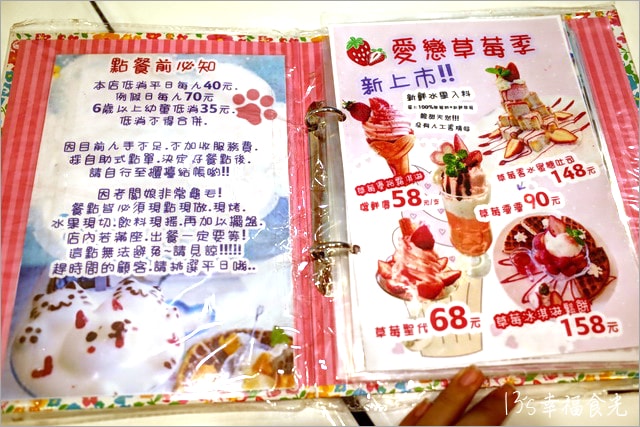 點餐前必知
本店低消平日每人40元.
例假日每人70元
6歲以上幼童低消35元.
低消不得合併.
因目前人手不足.不加收服務費.
採自助式點單.決定好餐點後.
請自行至櫃檯結帳喲!!
因老闆娘非常龜毛!
餐點皆必須現點現做.現烤.
水果現切.飲料現搖.再加以擺盤.
店內若滿座.出餐一定要等!
這點無法避免~請見諒!!!!!
趕時間的顧客.請挑選平日哦..
愛戀草莓季
新上市!!
新鮮水果入料
酸甜天然!!!
沒有人工香精哦
嚐鮮價58元/支
草莓蜜糖吐司
148元
草莓聖代 68元
90元
草莓冰淇淋鬆餅
158元
135幸福食光